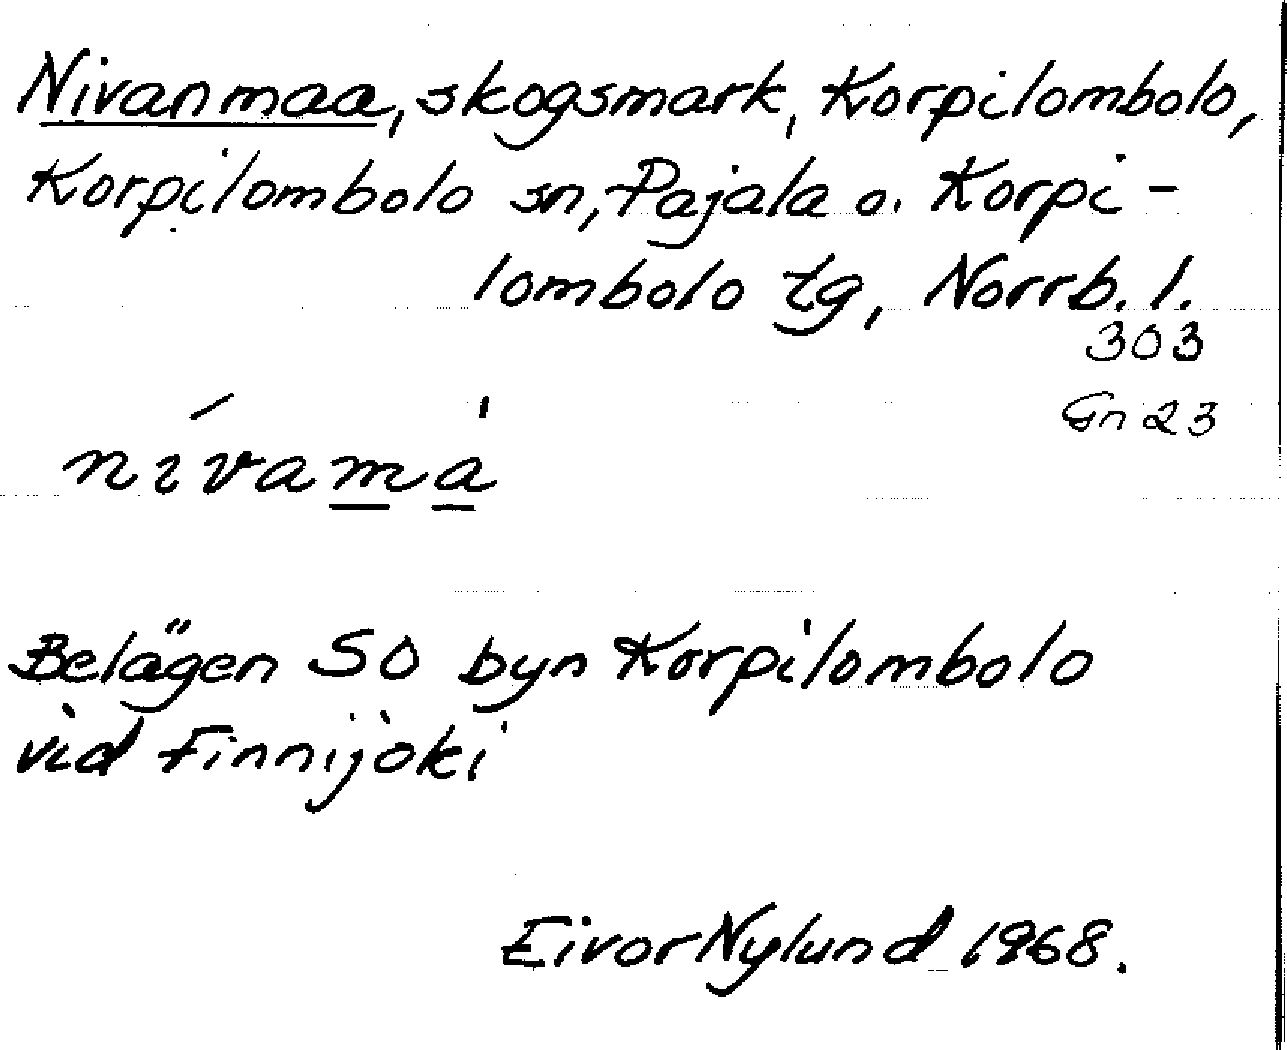 Nivanmaa, skogsmark, Korpilombolo,
Korpilombolo sn, Pajala o. Korpi-
lombolo tg, Norrb. l.
303
Gn 23
nívamà
Belägen SO byn Korpilombolo
vid Finnijoki
Eivor Nylund 1968.